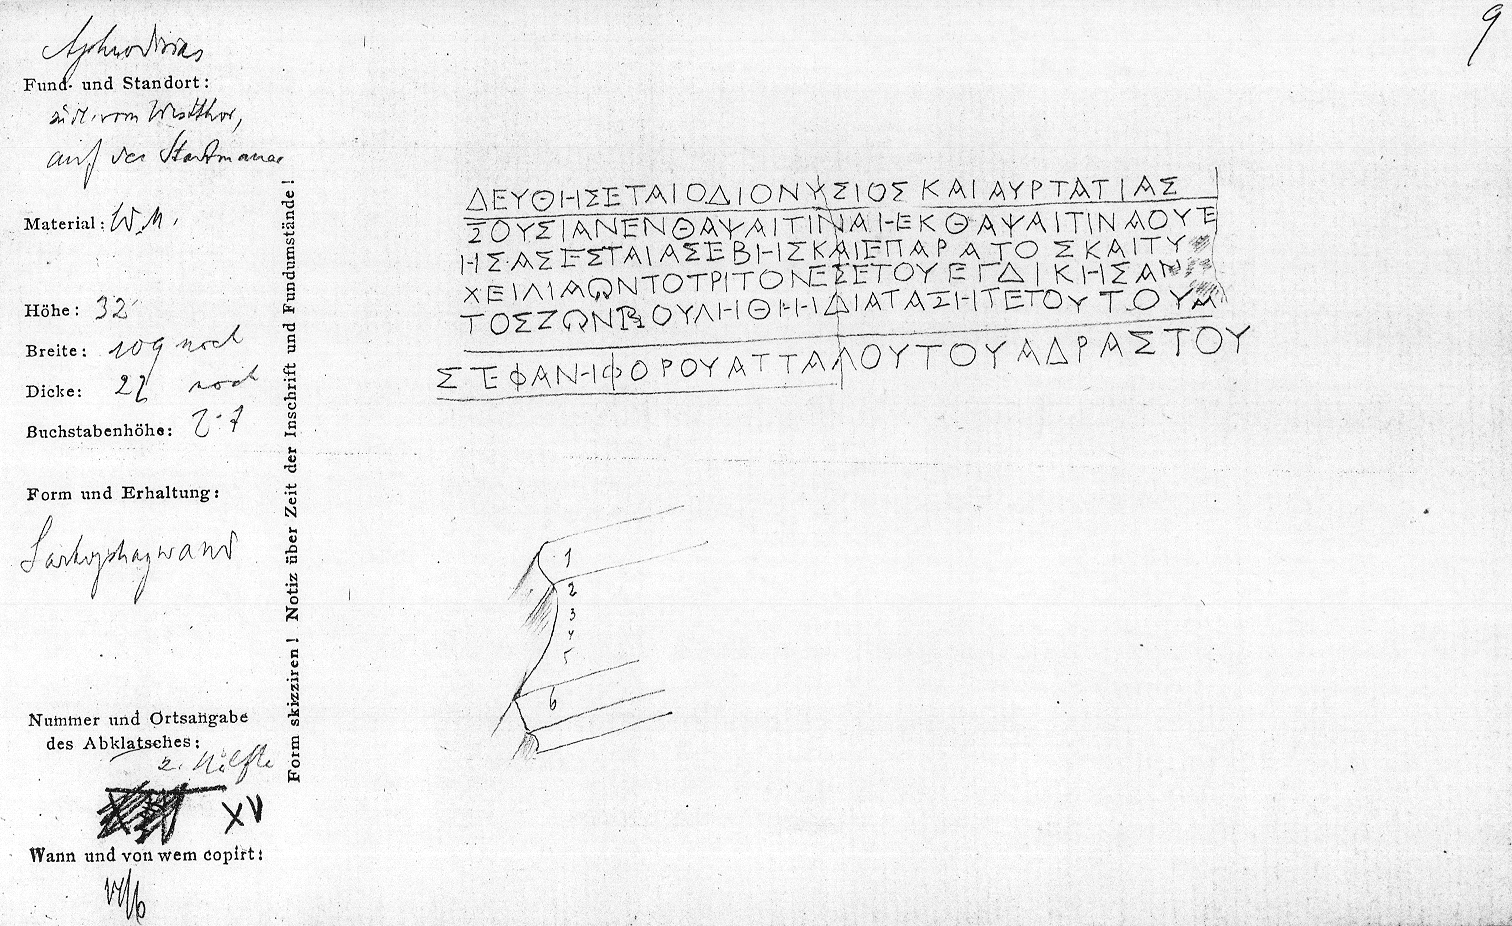 9
Aphrodisias
Fund- und Standort:
südl. vom Westthor,
auf der Stadtmauer
Material: W.M.
Höhe: 32
Breite: 109 noch
Dicke: 27 noch
Buchstabenhöhe:
Form und Erhaltung:
Sarkophagwand
Nummer und Ortsangabe
des Abklatsches:
2. Hälfte
XV
Wann und von wem copirt:
Form skizziren! Notiz über Zeit der Inschrift und Fundumstände!
ΔΕΥΘΗΣΕΤΑΙΟΔΙΟΝΥΣΙΟΣΚΑΙΑΥΡΤΑΤΙΑΣ
ΣΟΥΣΙΑΝΕΝΘΑΨΑΙΤΙΝΑΗΕΚΘΑΨΑΙΤΙΝΑΟΥΤΕ
ΗΣΑΣΕΣΤΑΙΑΣΕΒΗΣΚΑΙΕΠΑΡΑΤΟΣΚΑΙΤΥ
ΧΕΙΛΙΑΩΝΤΟΤΡΙΤΟΝΕΣΕΤΟΥΕΓΔΙΚΗΣΑΝ
ΤΟΣΖΩΝΒΟΥΛΗΘΗΔΙΑΤΑΣΗΤΕΤΟΥΤΟΥΑ
ΣΤΕΦΑΝΗΦΟΡΟΥΑΤΤΑΛΟΥΤΟΥΑΔΡΑΣΤΟΥ
1
2
3
4
5
6